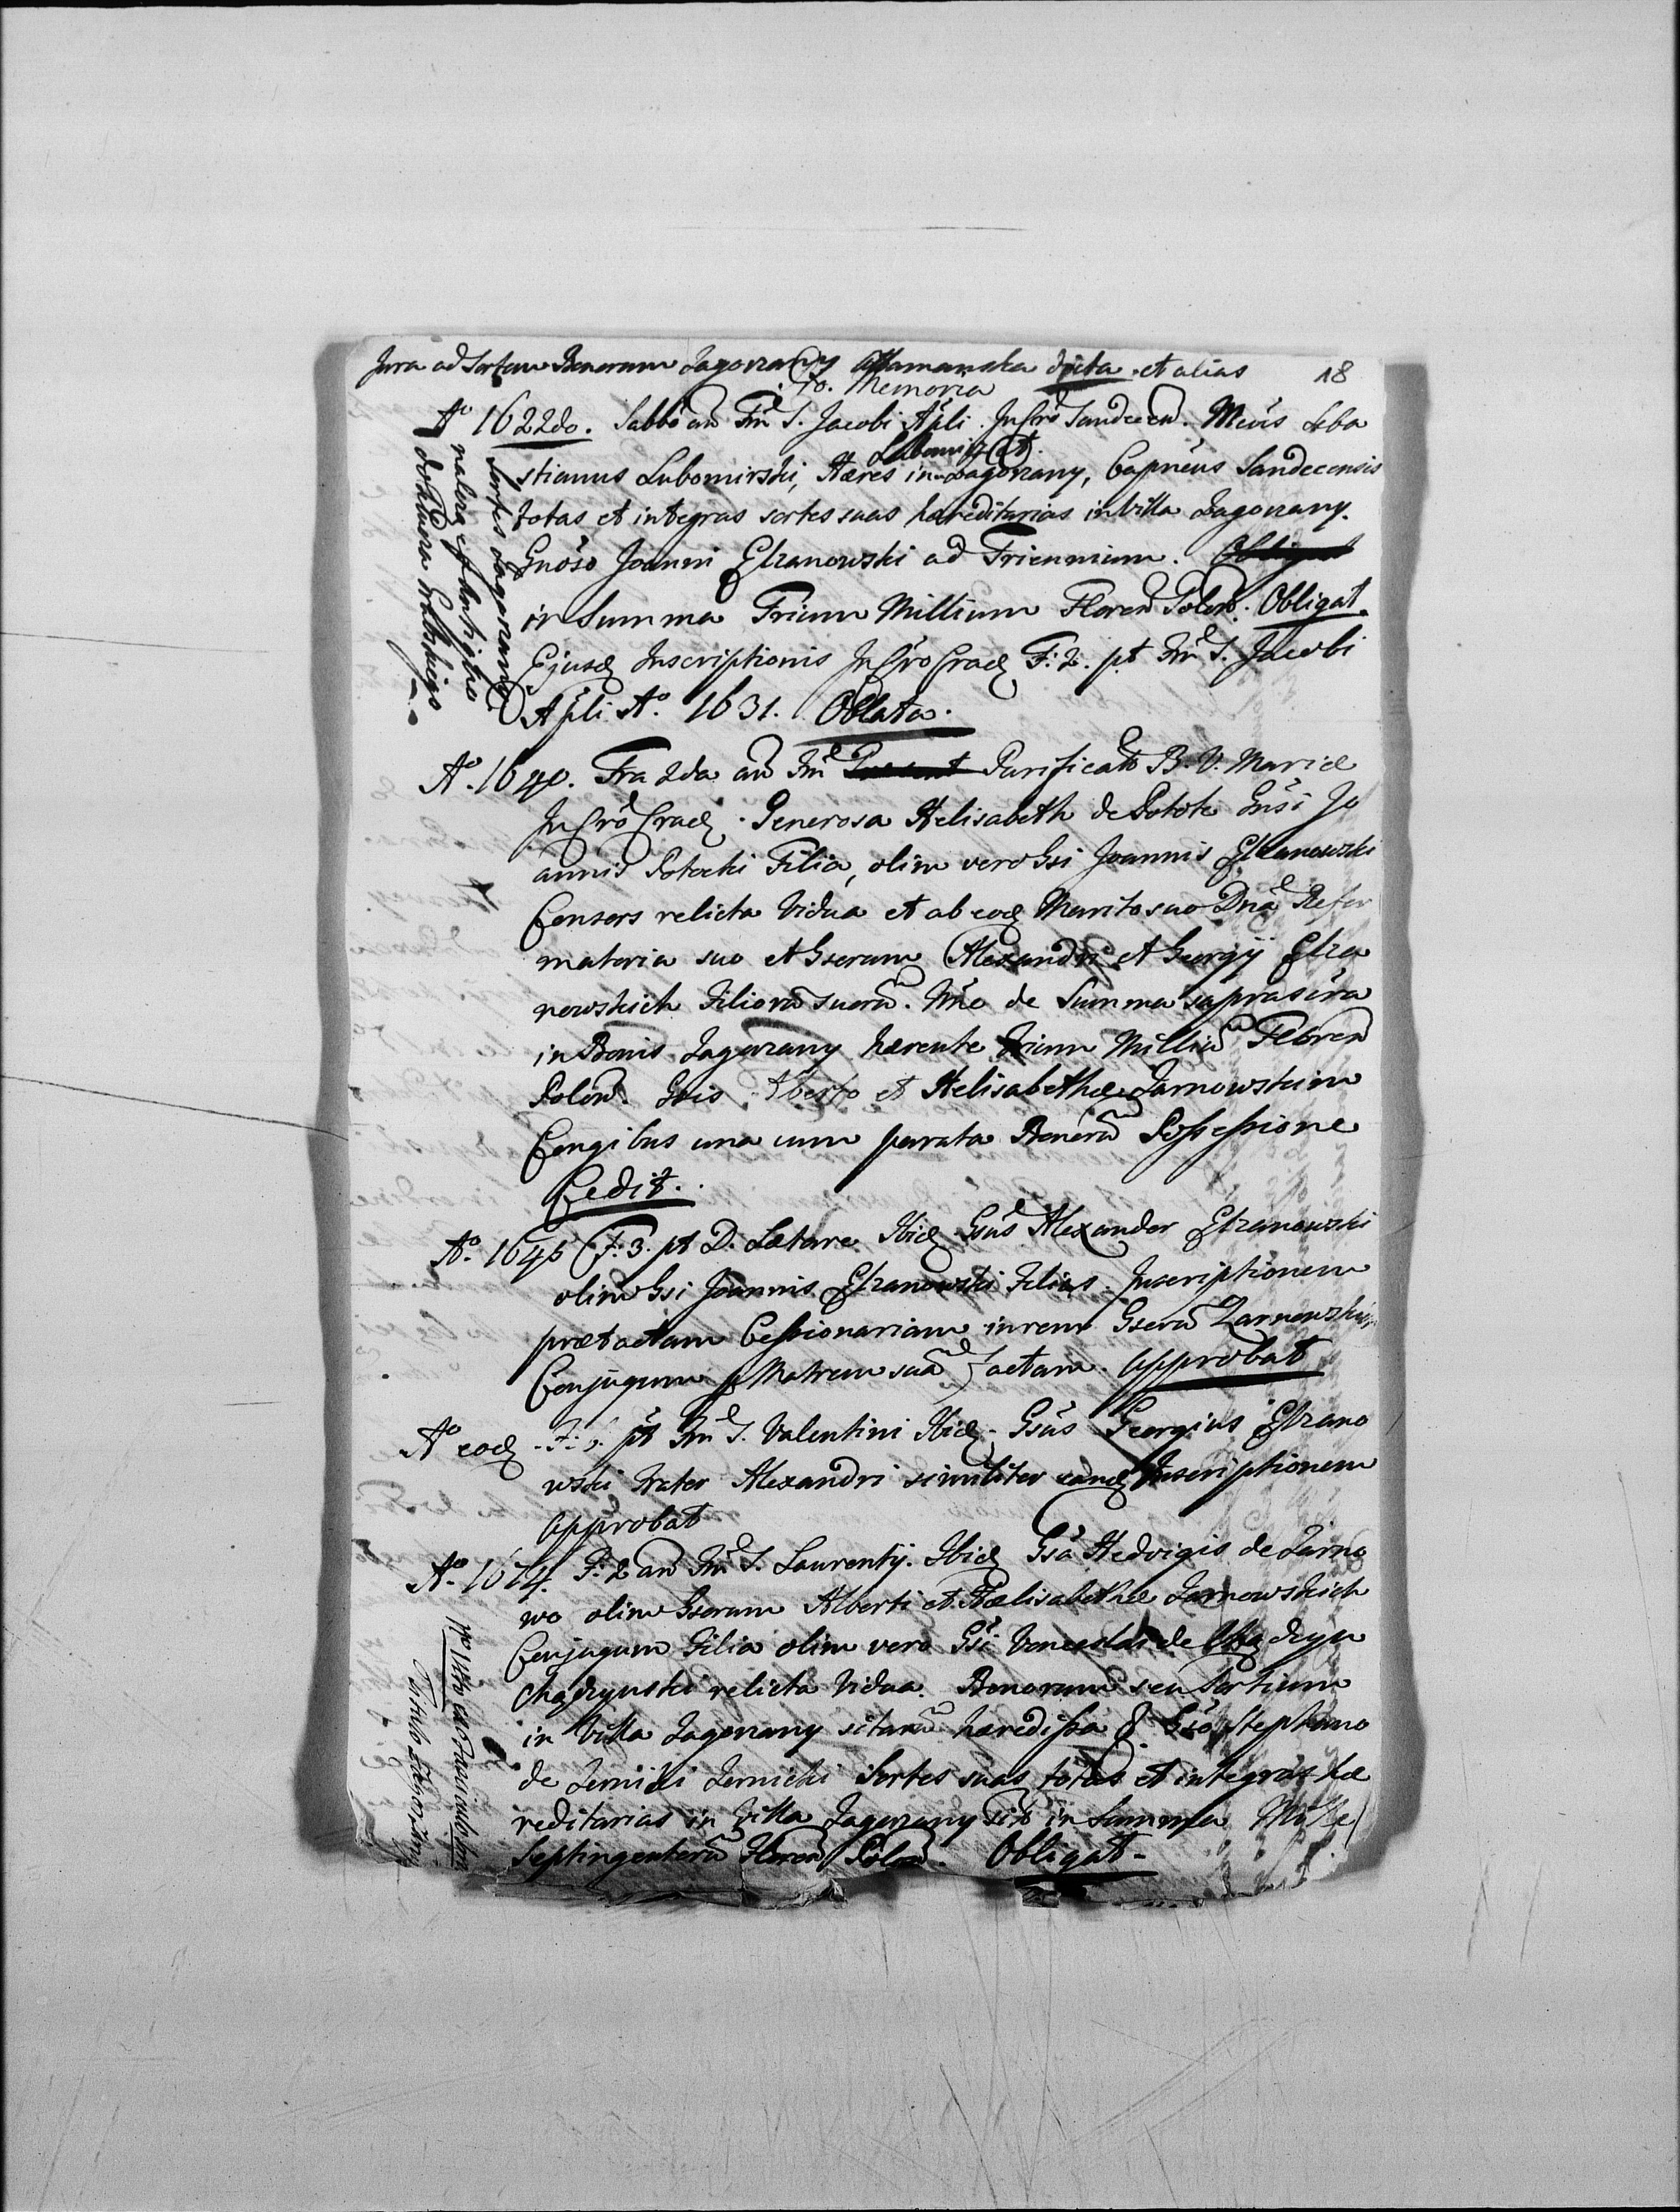 Jura ad Sortem Bonorum Zagorzany Attamanska dicta et alias 18
Pro. Memoria
Aº 1622do. Sabbo an Fm S. Jacobi Apli. In Cro Sandecen. Mcus Seba
Lubomierz et
stianus Lubomirski, Hæres in Zagorzany, Capneus Sandecensis
totas et integras sortes suas hæreditarias in Villa Zagorzany.
Gnoso Joanni Elzanowski ad Triennium. Obligat
in Summa Trium Millium Floren Polon. Obligat.
Ejusd Inscriptionis In Cro Crac F: 2. pt Fm S. Jacobi
Apli Aº. 1631. Oblata.
Sortes Zagorzano
należą
do Klucza
Aº. 1640. Fra 2da an Fm Purificatis B. V. Mariæ
In Cro Crac. Generosa Helisabeth de Potok Gnsi Jo
annis Potocki Filia, olim vero Gsi Joannis Elzanowski
Consors relicta Vidua et ab eod Marito suo Dna Refor
matoria suo et Gserum Alexandri et Georgij Elza
nowskich Filioru suoru. Nne de Summa sua prasura
in Bonis Zagorzany hærente Trium Milliu Floren
Polon. Gsis Alberto et Helisabethæ Zarnowskim
Congibus una cum parata Bonoru Possessione
Cedit.
Aº. 1646 F: 3. pt D. Lætare Ibid Gsus Alexander Elzanowski
olim Gsi Joannis Elzanowski Filius. Inscriptionem
prætactam Cessionariam in rem Gseru Zarnowskich
Conjugum p Matrem suã factam. Approbat
Aº eod. F: pt Fm S. Valentini Ibid. Gsus Georgius Elzano
wski Frater Alexandri similiter eand Inscriptionem
Approbat
Aº. 1674. F: 2 an Fm S. Laurentij. Ibid Gsa Hedvigis de Zarno
wo olim Gserum Alberti et Hælisabethæ Zarnowskich
Conjugum Filia olim vero Gsi Venceslai de
Chądzynski relicta Vidua. Bonorum seu Sortium
in Villa Zagorzany sitaru hæredissa Gso Stephano
de Zernicki Zernicki Sortes suas totas et integras hæ
reditarias in Villa Zagorzany sits in Summa Mille
Septingentoru Floren Polon. Obligat.